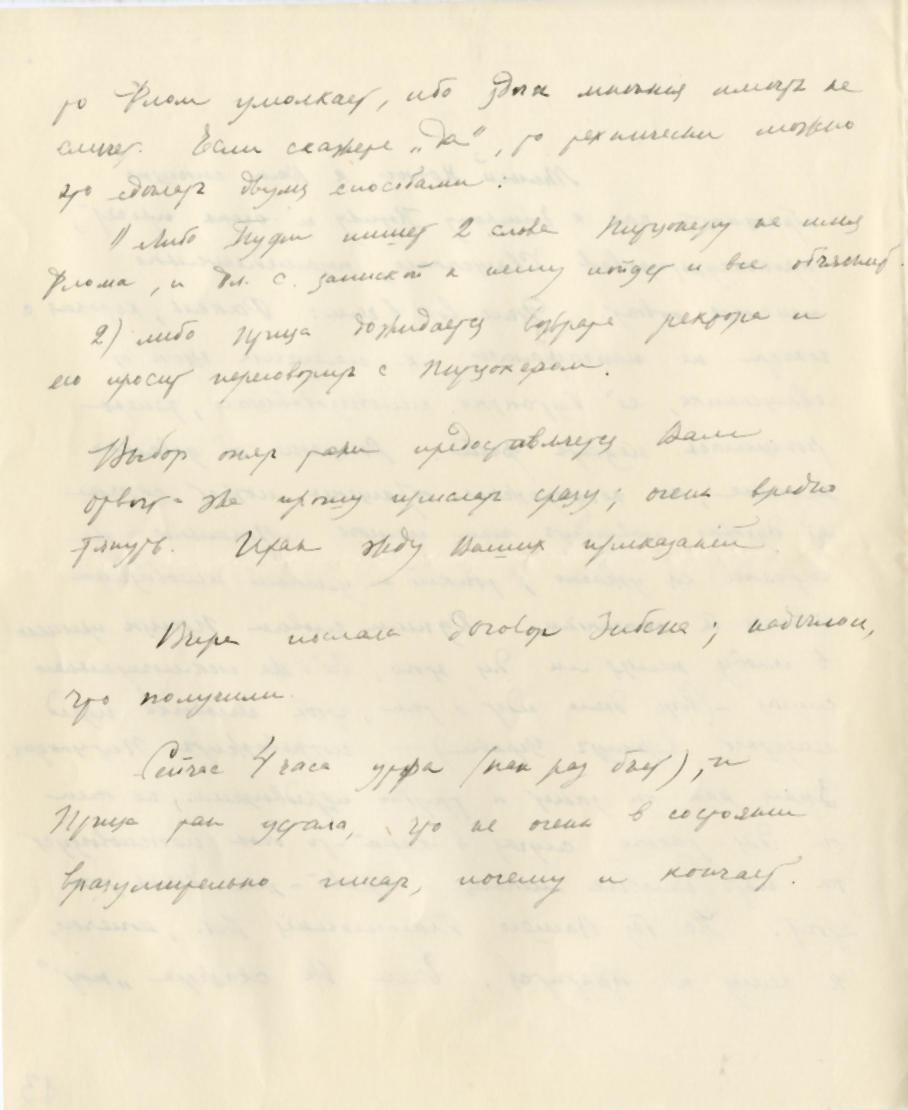 то Флом умолкает, ибо здесь мнения иметь не
смеет. Если скажете „да“, то технически можно
это сделать двумя способами:
1) Либо Пуфи пишет 2 слова Питцокеру на имя
Флома, и Фл. с запиской к нему пойдет и все объяснит.
2) либо Птица дожидается возврата ректора и
его просит переговорить с Питцокером.
Выбор опять таки предоставляется Вам
ответ-же прошу прислать сразу; очень вредно
тянуть. Итак жду Ваших приказаний
Вчера послала договор Зибека; надеюсь,
что получили.
Сейчас 4 часа утра (как раз бьет), и
Птица так устала, что не очень в состоянии
вразумительно писать, почему и кончает.